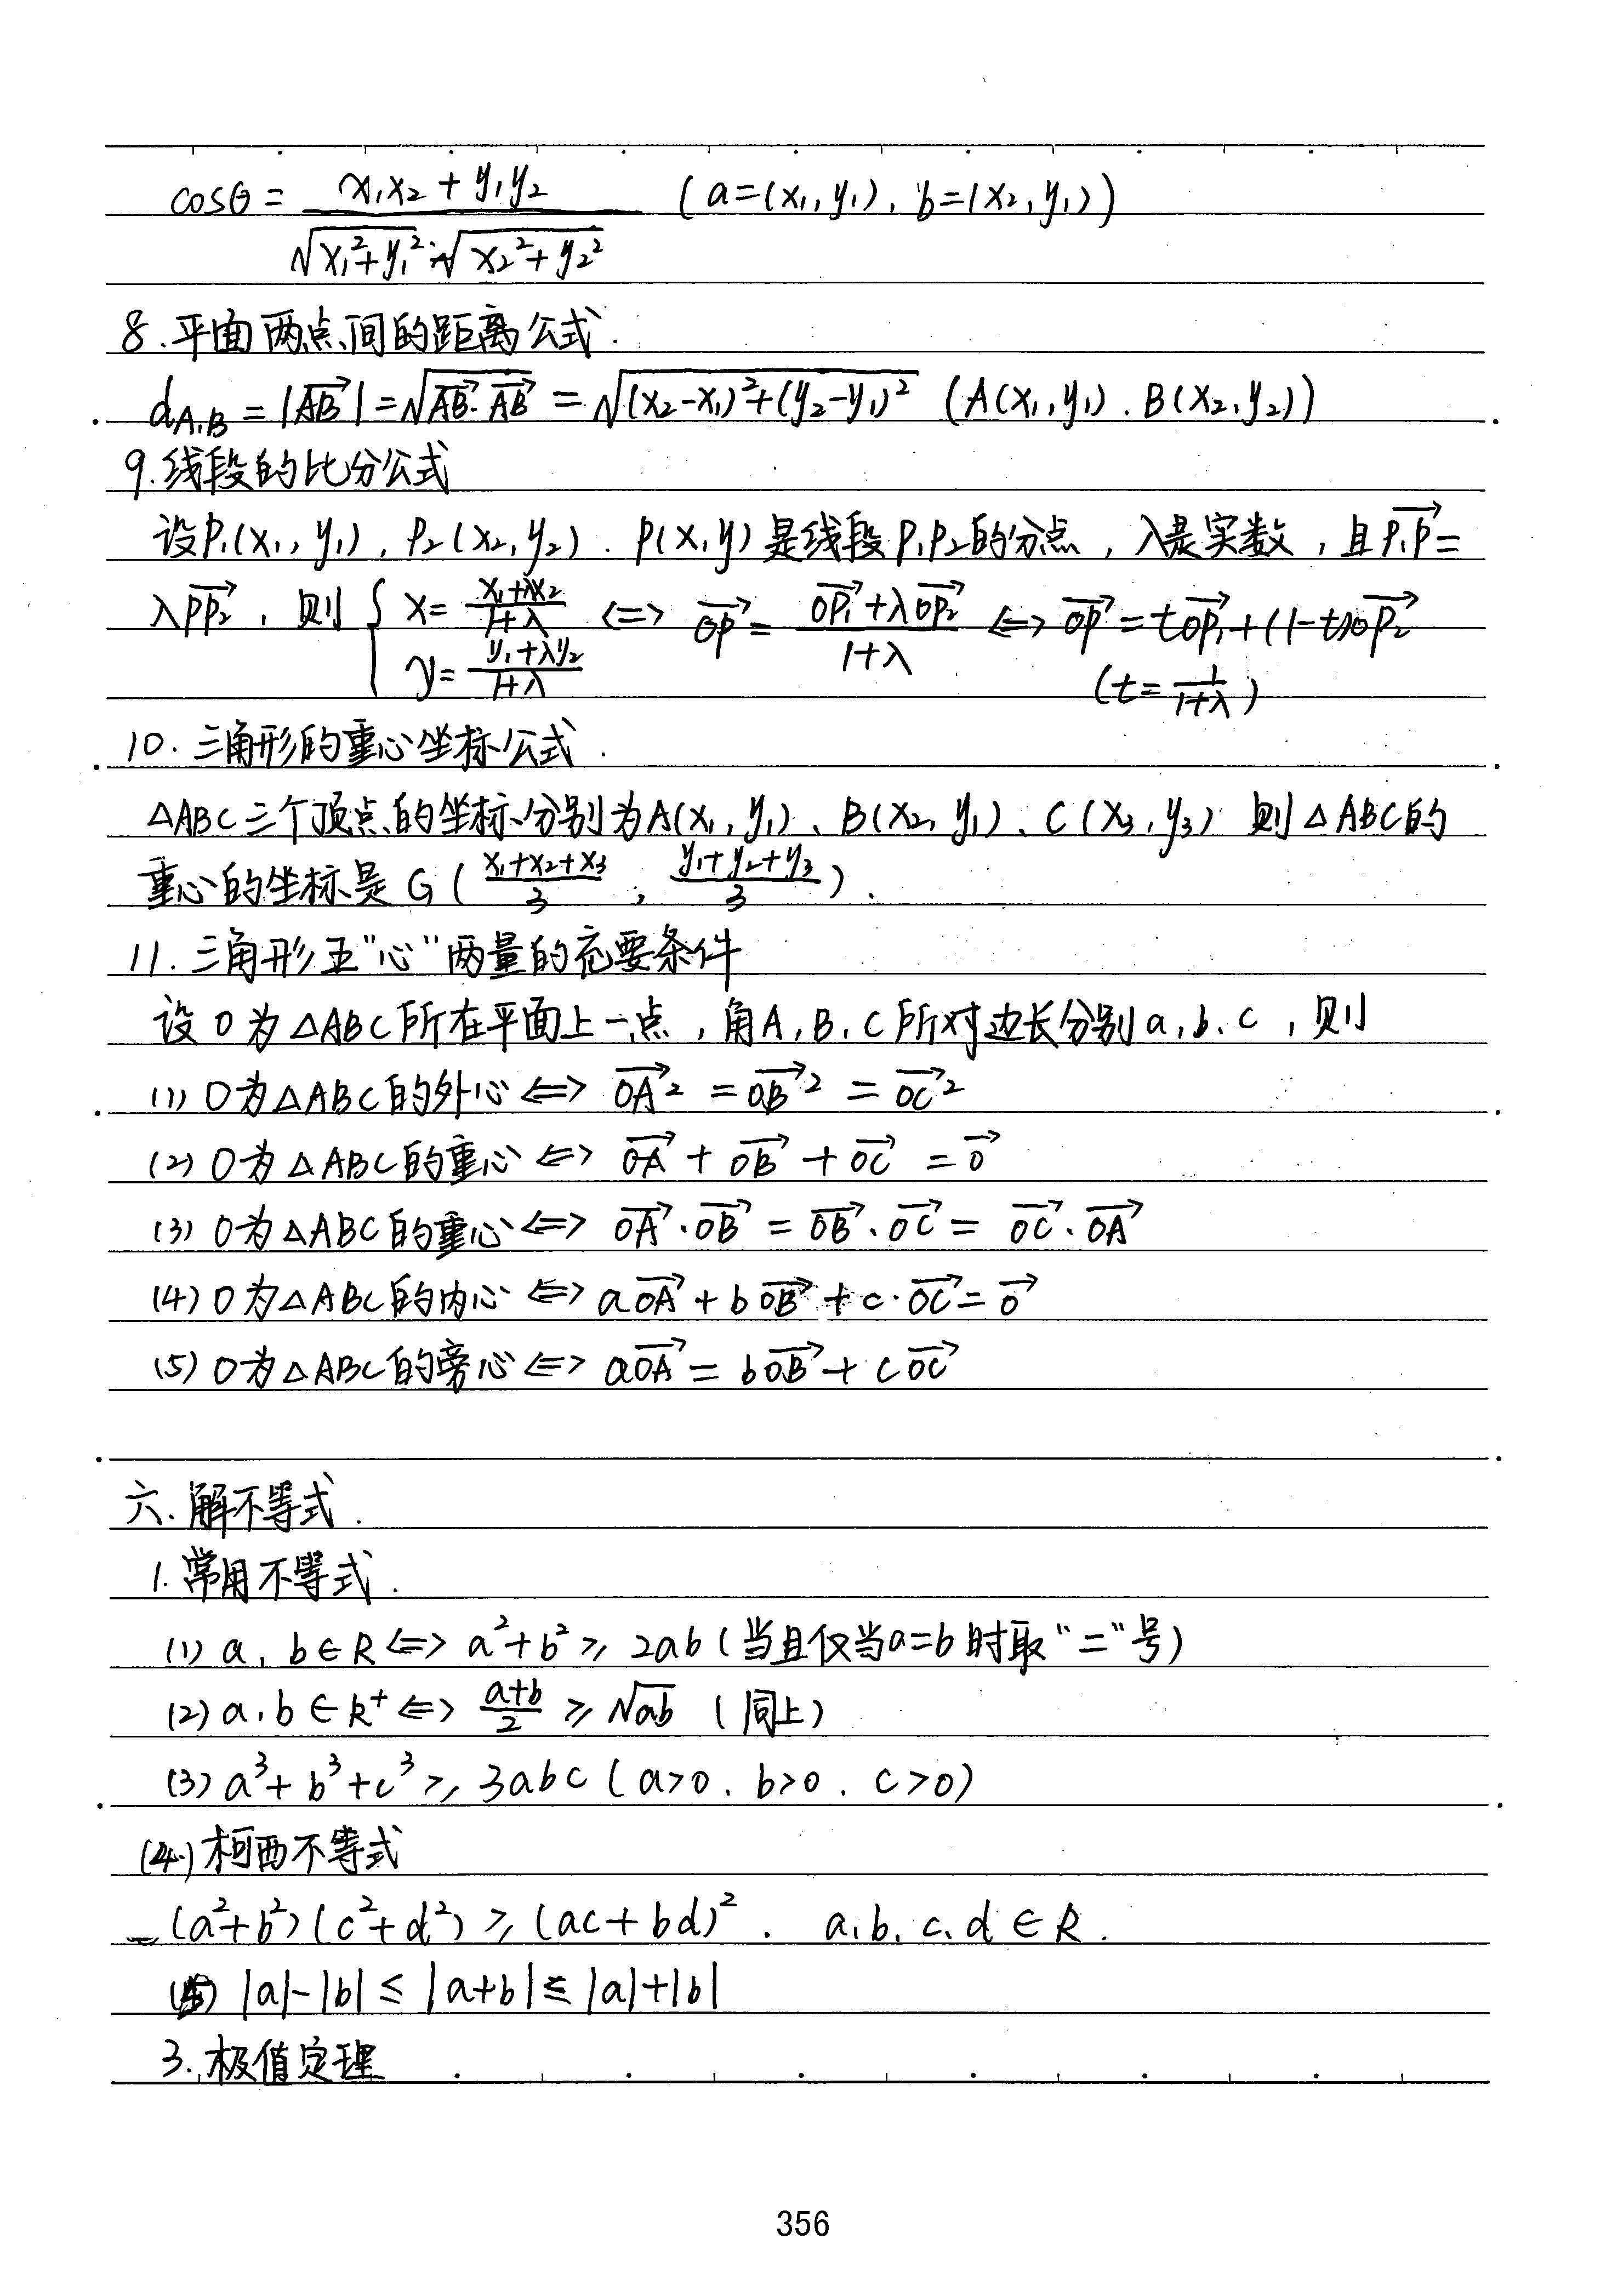 cosθ = \frac{x₁x₂ + y₁y₂}{\sqrt{x₁²+y₁²}·\sqrt{x₂²+y₂²}} (a=(x₁,y₁), b=(x₂,y₁))
8.平面两点间的距离公式.
d_{A,B} = |\overrightarrow{AB}| = \sqrt{\overrightarrow{AB}·\overrightarrow{AB}} = \sqrt{(x₂-x₁)²+(y₂-y₁)²} (A(x₁,y₁).B(x₂,y₂))
9.线段的比分公式
设P₁(x₁,y₁),P₂(x₂,y₂).P(x,y)是线段P₁P₂的分点,λ是实数,且\overrightarrow{P₁P}=
λ\overrightarrow{PP₂},则{x=\frac{x₁+λx₂}{1+λ} y=\frac{y₁+λy₂}{1+λ} <=> \overrightarrow{OP}=\frac{\overrightarrow{OP₁}+λ\overrightarrow{OP₂}}{1+λ} <=> \overrightarrow{OP}=t\overrightarrow{OP₁}+(1-t)\overrightarrow{OP₂}
(t=\frac{1}{1+λ})
10.三角形的重心坐标公式.
△ABC三个顶点的坐标分别为A(x₁,y₁)、B(x₂,y₁)、C(x₃,y₃) 则△ABC的
重心的坐标是G(\frac{x₁+x₂+x₃}{3},\frac{y₁+y₂+y₃}{3}).
11.三角形五"心"两量的充要条件
设O为△ABC所在平面上一点,角A,B,C所对边长分别a,b,c,则
(1)O为△ABC的外心<=> \overrightarrow{OA}²=\overrightarrow{OB}²=\overrightarrow{OC}²
(2)O为△ABC的重心<=> \overrightarrow{OA}+\overrightarrow{OB}+\overrightarrow{OC}=\overrightarrow{0}
(3)O为△ABC的重心<=> \overrightarrow{OA}·\overrightarrow{OB}=\overrightarrow{OB}·\overrightarrow{OC}=\overrightarrow{OC}·\overrightarrow{OA}
(4)O为△ABC的内心<=> a\overrightarrow{OA}+b\overrightarrow{OB}+c·\overrightarrow{OC}=\overrightarrow{0}
(5)O为△ABC的旁心<=> a\overrightarrow{OA}=b\overrightarrow{OB}+c\overrightarrow{OC}
六.解不等式.
1.常用不等式.
(1)a,b∈R<=> a²+b²≥2ab(当且仅当a=b时取"="号)
(2)a,b∈R⁺<=> \frac{a+b}{2}≥\sqrt{ab} (同上)
(3)a³+b³+c³≥3abc(a>0.b>0.c>0)
(4)柯西不等式
(a²+b²)(c²+d²)≥(ac+bd)². a,b,c,d∈R.
(5)|a|-|b|≤|a+b|≤|a|+|b|
3.极值定理
356